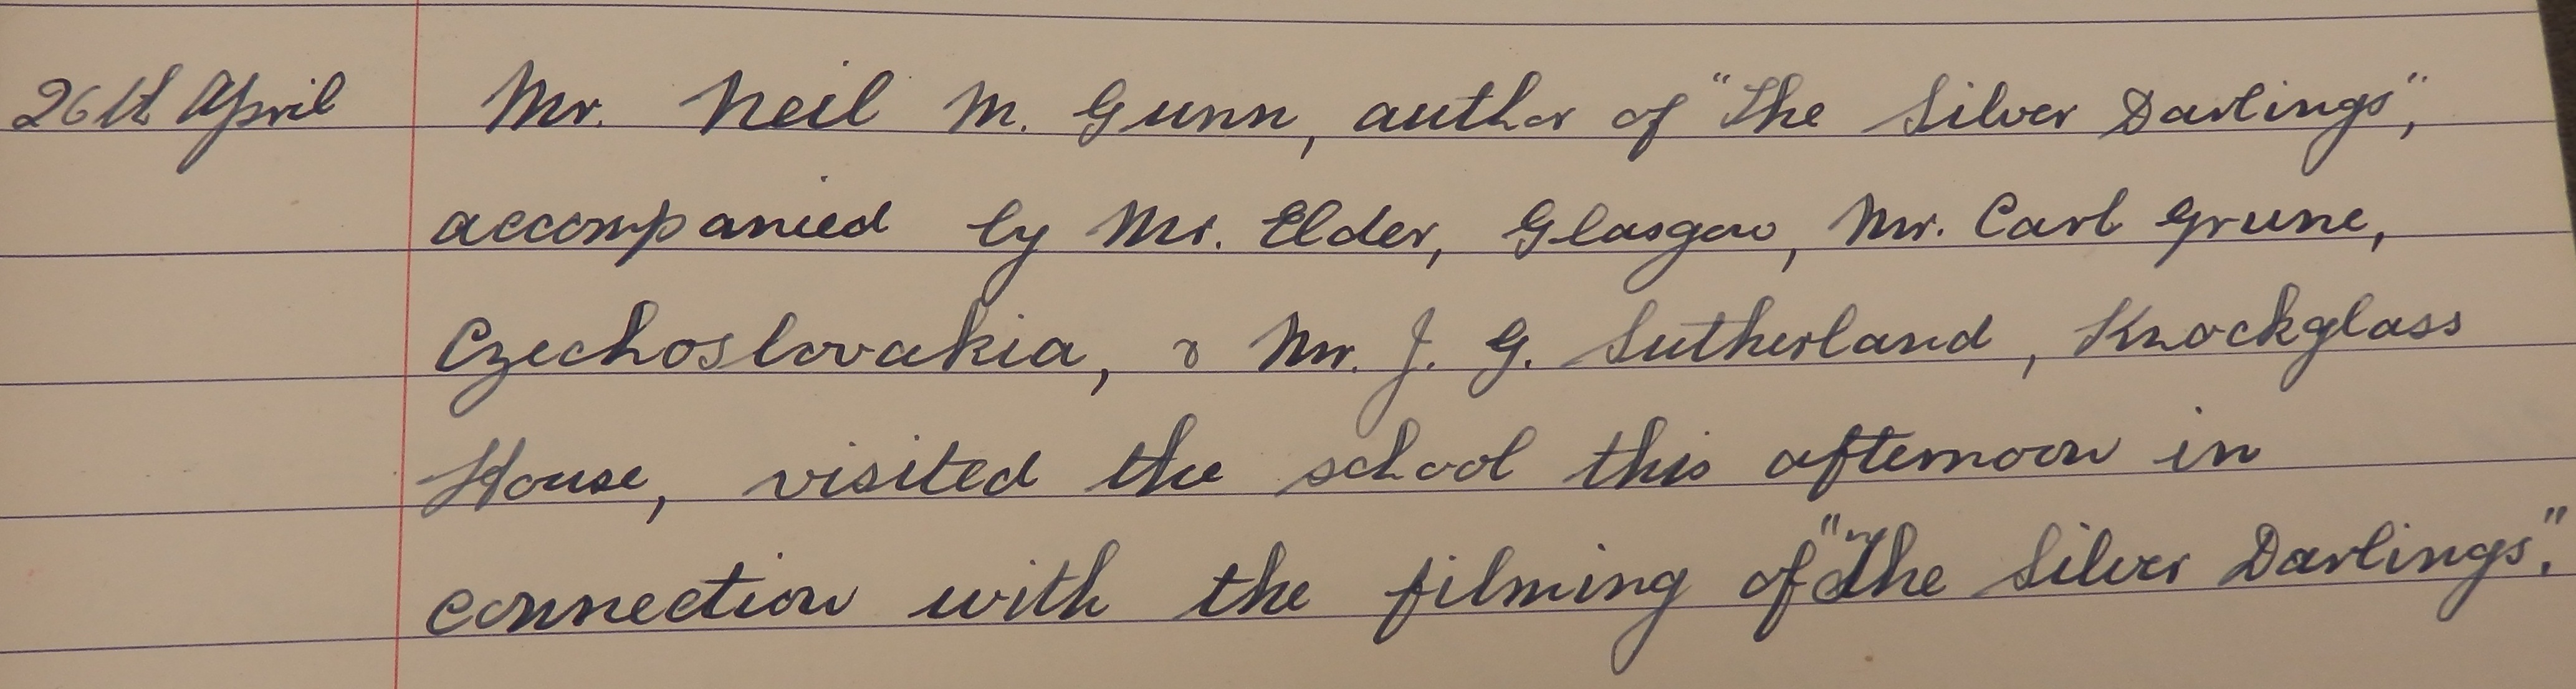 26th April Mr. Neil M. Gunn, author of "The Silver Darlings",
accompanied by Mr. Elder, Glasgow, Mr. Carl Grune,
Czechoslovakia, & Mr. J. G. Sutherland, Knockglass
House, visited the school this afternoon in
connection with the filming of "The Silver Darlings".